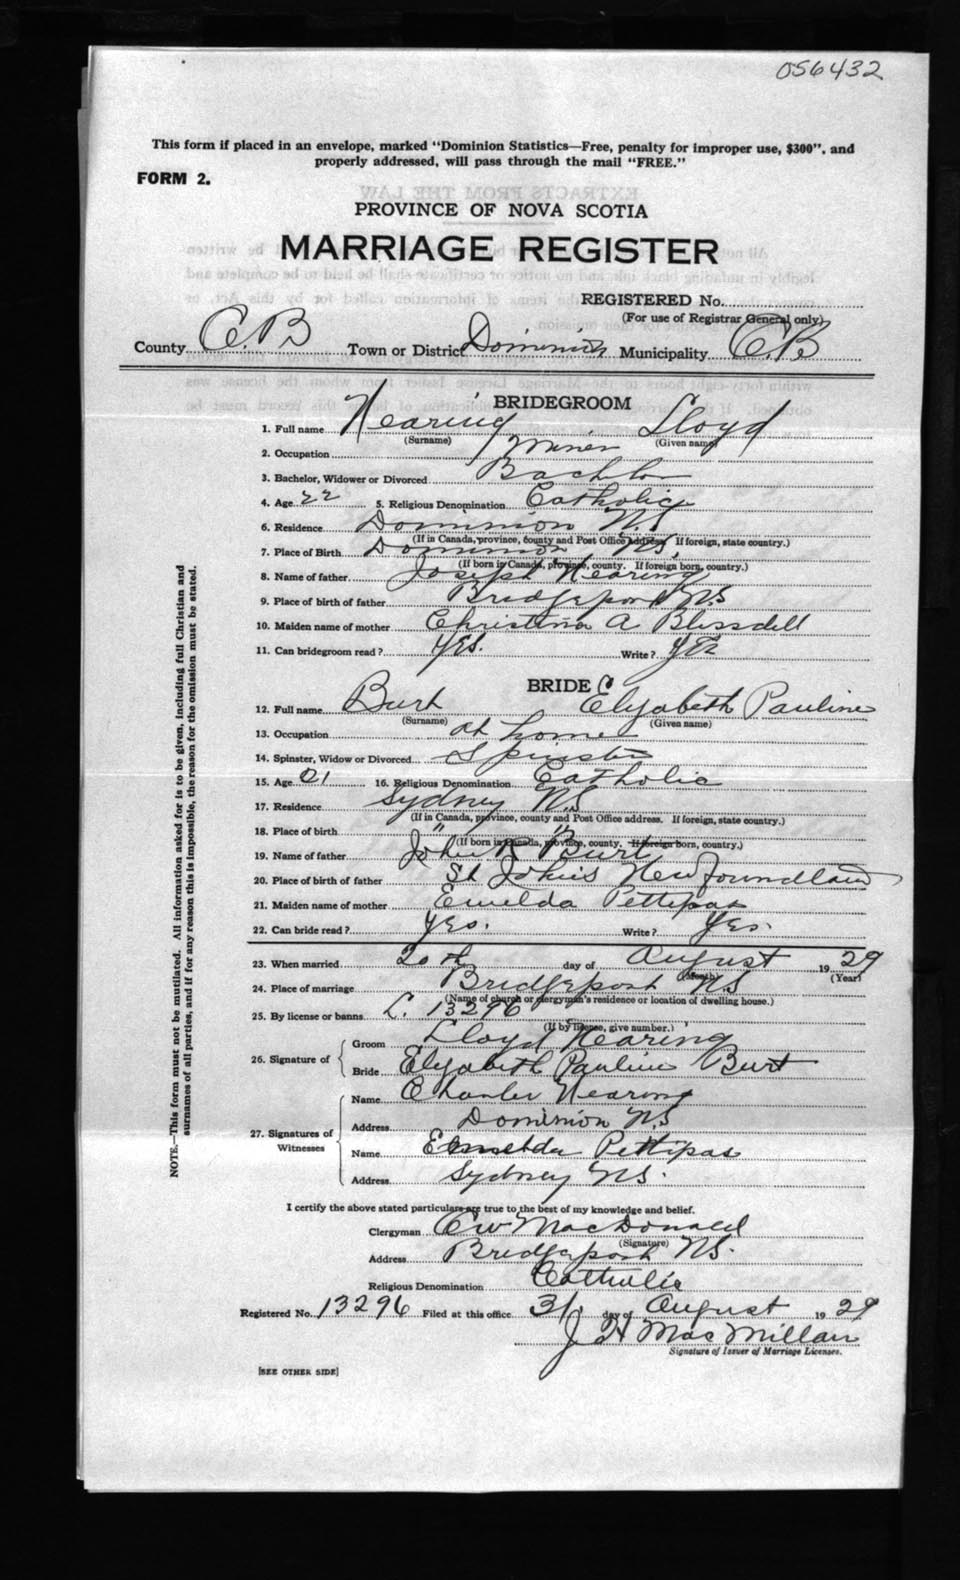 056432
This form if placed in an envelope, marked "Dominion Statistics—Free, penalty for improper use, $300", and
properly addressed, will pass through the mail "FREE."
FORM 2.
PROVINCE OF NOVA SCOTIA
MARRIAGE REGISTER
REGISTERED No.
(For use of Registrar General only)
County C.B Town or District Dominion Municipality C.B
BRIDEGROOM
1. Full name Nearing Lloyd
(Surname) (Given name)
2. Occupation Miner
3. Bachelor, Widower or Divorced Bachelor
4. Age 22 5. Religious Denomination Catholic
6. Residence Dominion N.S
(If in Canada, province, county and Post Office address. If foreign, state country.)
7. Place of Birth Dominion N.S.
(If born in Canada, province, county. If foreign born, country.)
8. Name of father Joseph Nearing
9. Place of birth of father Bridgeport N.S
10. Maiden name of mother Christina A Blissdell
11. Can bridegroom read? Yes. Write? Yes
BRIDE
12. Full name Burt Elyzabeth Pauline
(Surname) (Given name)
13. Occupation at home
14. Spinster, Widow or Divorced Spinster
15. Age 21 16. Religious Denomination Catholic
17. Residence Sydney N.S
(If in Canada, province, county and Post Office address. If foreign, state country.)
18. Place of birth " "
(If born in Canada, province, county. If foreign born, country.)
19. Name of father John R Burt
20. Place of birth of father St Johns Newfoundland
21. Maiden name of mother Emelda Pettipas
22. Can bride read? Yes. Write? Yes.
23. When married 20th day of August 1929
(Month) (Year)
24. Place of marriage Bridgeport N.S
(Name of church or clergyman's residence or location of dwelling house.)
25. By license or banns L. 13296
(If by license, give number.)
26. Signature of
Groom Lloyd Nearing
Bride Elyzabeth Pauline Burt
27. Signatures of Witnesses
Name Charles Nearing
Address Dominion N.S
Name Emelda Pettipas
Address Sydney N.S.
I certify the above stated particulars are true to the best of my knowledge and belief.
Clergyman C W MacDonald
(Signature)
Address Bridgeport N.S.
Religious Denomination Catholic
Registered No. 13296 Filed at this office 31 day of August 1929
J H MacMillan
Signature of Issuer of Marriage Licenses.
[SEE OTHER SIDE]
NOTE.—This form must not be mutilated. All information asked for is to be given, including full Christian and
surnames of all parties, and if for any reason this is impossible, the reason for the omission must be stated.